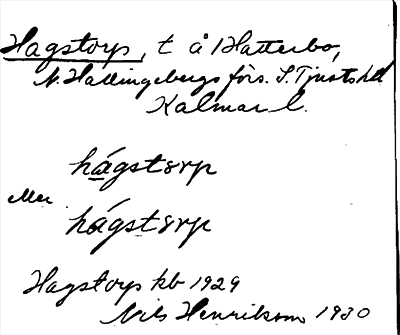 Hagstorp, t å Hatterbo,
N. Hallingebergs förs. S. Tjusts hd
Kalmar l.
hágstɘrp
eller
hágstɘrp
Hagstorp kb 1929
Nils Henrikson 1930